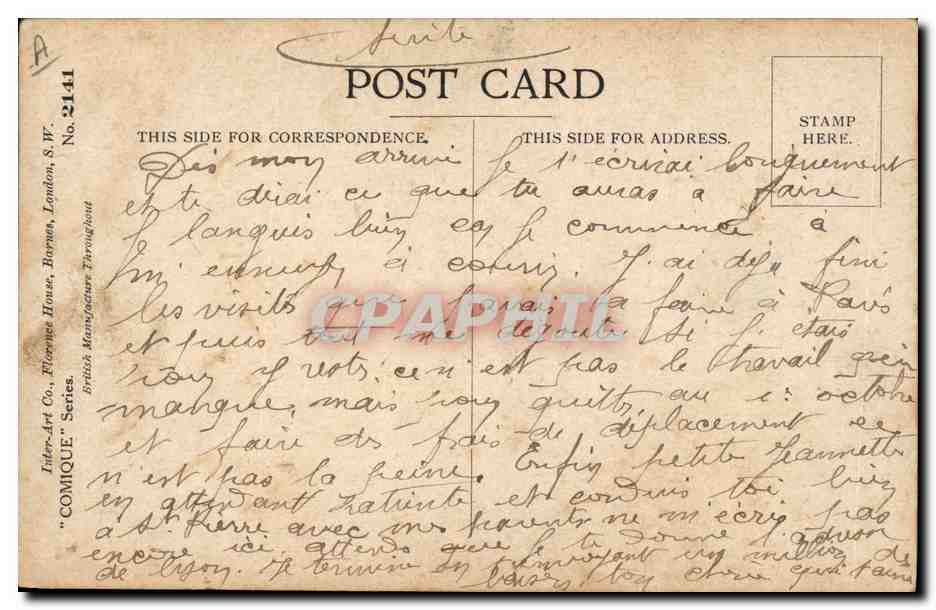 A
Suite
POST CARD
THIS SIDE FOR CORRESPONDENCE.
THIS SIDE FOR ADDRESS.
STAMP
HERE.
Inter-Art Co., Florence House, Barnes, London, S.W.
"COMIQUE" Series.
No. 2141
British Manufacture Throughout
CPAPHIL
Dès mon arrivé je t'écrirai longuement
et te dirai ce que tu auras à faire
Je languis bien car je commence à
m'ennuyer à courir. J'ai déjà fini
les visites que j'avais à faire à Paris
et puis tout me dégoute si j'étais
pour y rester, ce n'est pas le travail qui
manque, mais pour quitter au 1: octobre
et faire des frais de déplacement ce
n'est pas la peine. Enfin petite Jeannette
en attendant patiente et conduis toi bien
à St Pierre avec mes parents ne m'écris pas
encore ici, attends que je te donne l'adresse
de Lyon. Je termine en t'envoyant un million de
baisers ton chéri qui t'aime